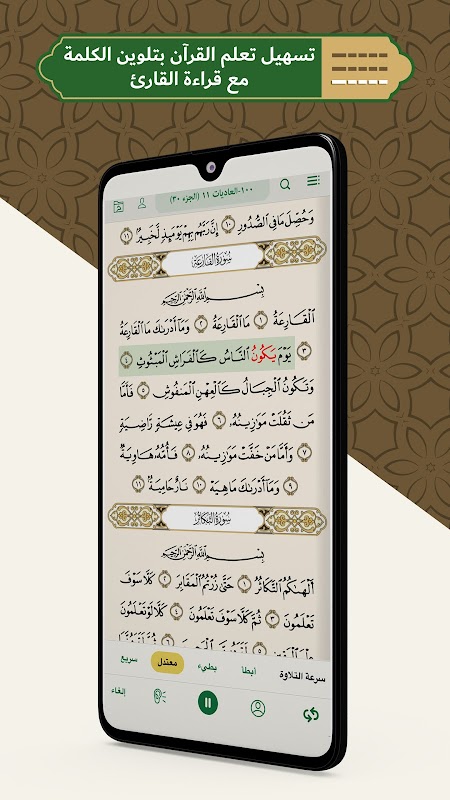 تسهيل تعلم القرآن بتلوين الكلمة
مع قراءة القارئ
١٠٠-العاديات ١١ (الجزء ٣٠)
وَحُصِّلَ مَا فِى ٱلصُّدُورِ ١٠ إِنَّ رَبَّهُم بِهِمْ يَوْمَئِذٍ لَّخَبِيرٌۢ ١١
سُورَةُ القَارِعَةِ
بِسْمِ ٱللَّهِ ٱلرَّحْمَٰنِ ٱلرَّحِيمِ
ٱلْقَارِعَةُ ١ مَا ٱلْقَارِعَةُ ٢ وَمَآ أَدْرَىٰكَ مَا ٱلْقَارِعَةُ
٣ يَوْمَ يَكُونُ ٱلنَّاسُ كَٱلْفَرَاشِ ٱلْمَبْثُوثِ ٤
وَتَكُونُ ٱلْجِبَالُ كَٱلْعِهْنِ ٱلْمَنفُوشِ ٥ فَأَمَّا
مَن ثَقُلَتْ مَوَٰزِينُهُۥ ٦ فَهُوَ فِى عِيشَةٍ رَّاضِيَةٍ
٧ وَأَمَّا مَنْ خَفَّتْ مَوَٰزِينُهُۥ ٨ فَأُمُّهُۥ هَاوِيَةٌ
٩ وَمَآ أَدْرَىٰكَ مَا هِيَهْ ١٠ نَارٌ حَامِيَةٌۢ ١١
سُورَةُ التَّكَاثُرِ
بِسْمِ ٱللَّهِ ٱلرَّحْمَٰنِ ٱلرَّحِيمِ
أَلْهَىٰكُمُ ٱلتَّكَاثُرُ ١ حَتَّىٰ زُرْتُمُ ٱلْمَقَابِرَ ٢ كَلَّا سَوْفَ
تَعْلَمُونَ ٣ ثُمَّ كَلَّا سَوْفَ تَعْلَمُونَ ٤ كَلَّا لَوْ تَعْلَمُونَ
سرعة التلاوة أبطأ بطيء معتدل سريع
إلغاء